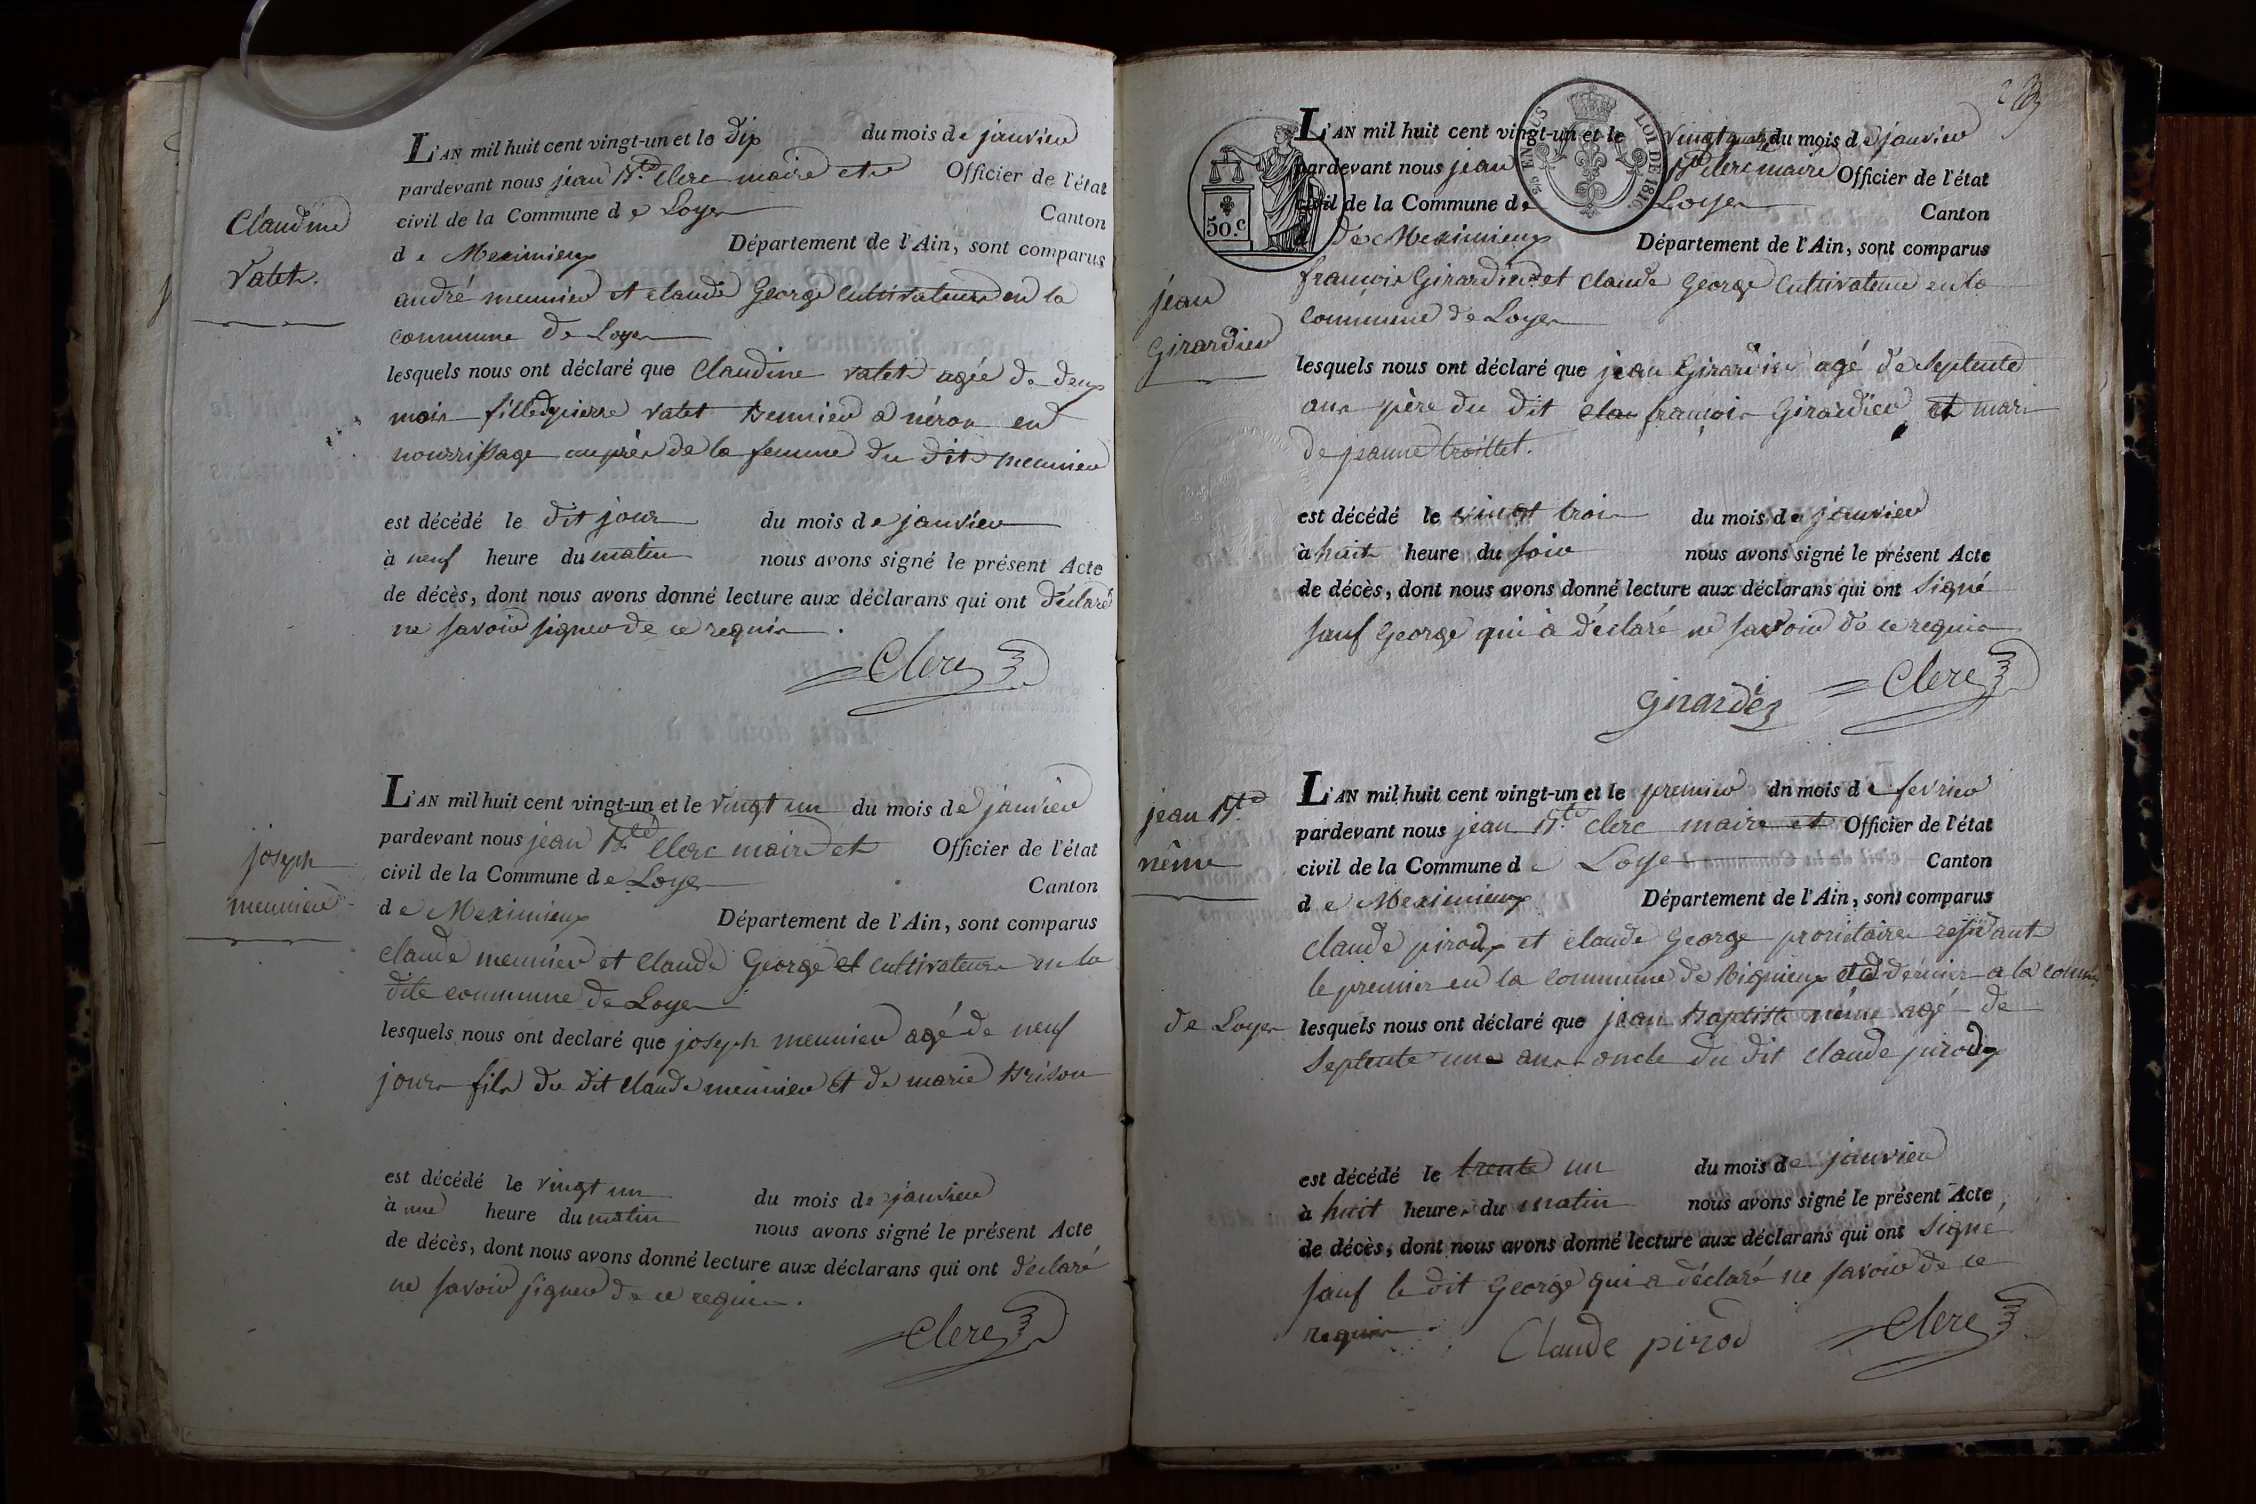 Claudine
Valet.
L'AN mil huit cent vingt-un et le dix du mois de janvier
pardevant nous jean Bte Clerc maire et Officier de l'état
civil de la Commune de Loyes Canton
de Meximieux Département de l'Ain, sont comparus
andré meunier et claude George Cultivateurs en la
commune de Loyes
lesquels nous ont déclaré que Claudine valet agée de deux
mois fille de pierre valet en
nourrissage auprès de la femme du dit meunier
est décédé le dit jour du mois de janvier
à neuf heure du matin nous avons signé le présent Acte
de décès, dont nous avons donné lecture aux déclarans qui ont déclaré
ne savoir signer de ce requis.
Clerc
joseph
meunier
L'AN mil huit cent vingt-un et le vingt un du mois de janvier
pardevant nous jean Bte Clerc maire et Officier de l'état
civil de la Commune de Loyes Canton
de Meximieux Département de l'Ain, sont comparus
claude meunier et Claude George et cultivateurs en la
dite commune de Loyes
lesquels nous ont declaré que joseph meunier agé de neuf
jours fils du dit claude meunier et de marie Brison
est décédé le vingt un du mois de janvier
à une heure du matin nous avons signé le présent Acte
de décès, dont nous avons donné lecture aux déclarans qui ont déclaré
ne savoir signer de ce requis.
Clerc
50.c
EN SUS
LOI DE 1816
jean
Girardier
L'AN mil huit cent vingt-un et le vingt quatre du mois de janvier
pardevant nous jean Bte clerc maire Officier de l'état
civil de la Commune de Loyes Canton
de Meximieux Département de l'Ain, sont comparus
françois Girardier et claude George Cultivateur en la
commune de Loyes
lesquels nous ont déclaré que jean Girardier agé de septente
ans père du dit françois Girardier et mari
de jeanne trollet.
est décédé le vingt trois du mois de janvier
à huit heure du soir nous avons signé le présent Acte
de décès, dont nous avons donné lecture aux déclarans qui ont signé
sauf George qui à déclaré ne savoir de ce requis
Girardez Clerc
jean Bte
nême
L'AN mil huit cent vingt-un et le premier du mois de fevrier
pardevant nous jean Bte clerc maire et Officier de l'état
civil de la Commune de Loyes Canton
de Meximieux Département de l'Ain, sont comparus
claude pirody et claude George propriétaires residants
le premier en la commune de Rignieux et le dernier a la comm.
de Loyes lesquels nous ont déclaré que jean baptiste nême agé de
septente une ans oncle du dit claude pirody
est décédé le trente un du mois de janvier
à huit heures du matin nous avons signé le présent Acte
de décès, dont nous avons donné lecture aux déclarans qui ont signé
sauf le dit George qui a déclaré ne savoir de ce
requis. Claude pirod Clerc